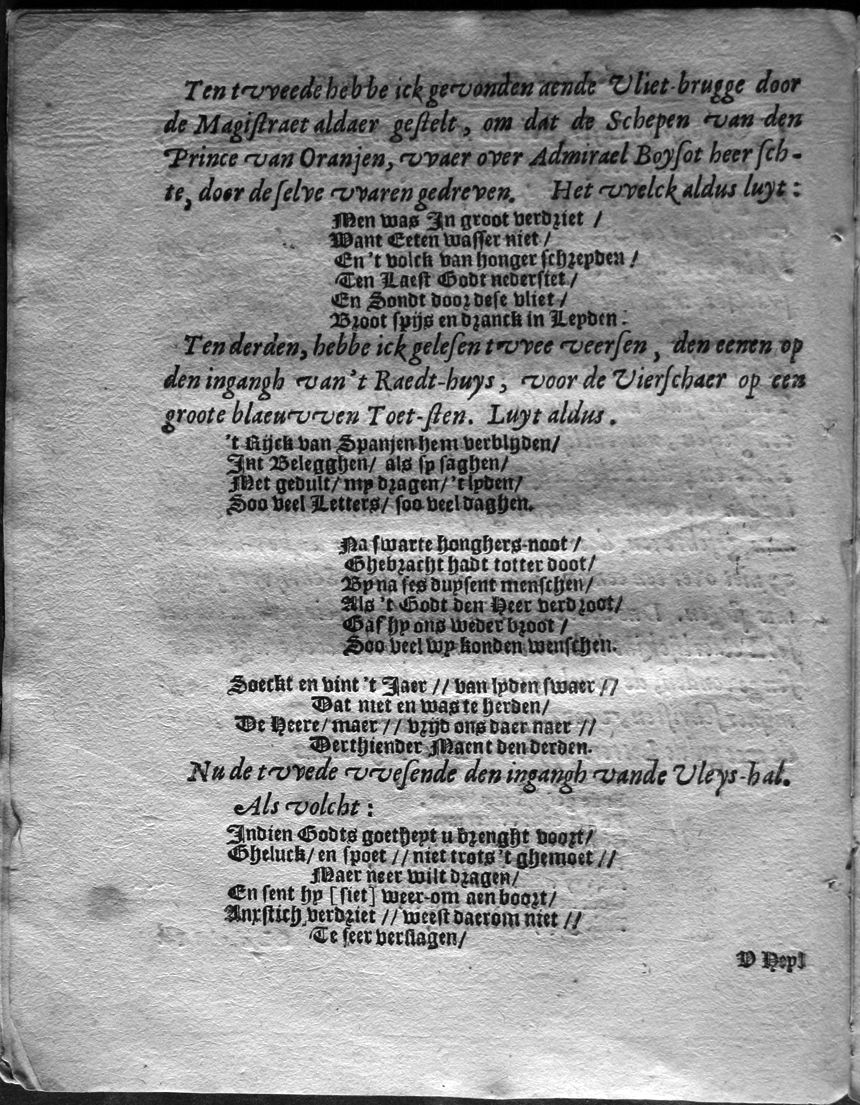 Ten tvveede hebbe ick gevonden aende Vliet-brugge door
de Magiſtraet aldaer geſtelt, om dat de Schepen van den
Prince van Oranjen, vvaer over Admirael Boyſot heerſch-
te, door de ſelve vvaren gedreven. Het vvelck aldus luyt:
Men was In groot verdriet /
Want Eeten waſſer niet /
En 't volck van honger ſchreyden /
Ten Laeſt Godt nederſiet /
En Sondt door deſe vliet /
Broot ſpijs en dranck in Leyden.
Ten derden, hebbe ick geleſen tvvee veerſen, den eenen op
den ingangh van't Raedt-huys, voor de Vierſchaer op een
groote blaeuvven Toet-ſten. Luyt aldus.
't Rijck van Spanjen hem verblyden/
Int Belegghen/ als ſy ſaghen/
Met gedult/ my dragen/ 't lyden/
Soo veel Letters/ ſoo veel daghen.
Na ſwarte honghers-noot /
Ghebracht hadt totter doot/
By na ſes duyſent menſchen/
Als 't Godt den Heer verdroot/
Gaf hy ons weder broot /
Soo veel wy konden wenſchen.
Soeckt en vint 't Jaer // van lyden ſwaer //
Dat niet en was te herden/
De Heere/ maer // vrijd ons daer naer //
Derthiender Maent den derden.
Nu de tvvede vveſende den ingangh vande Vleys-hal.
Als volcht:
Indien Godts goetheyt u brenght voort/
Gheluck/ en ſpoet // niet trots 't ghemoet //
Maer neer wilt dragen/
En ſent hy [ſiet] weer-om aen boort/
Anxſtich verdriet // weeſt daerom niet //
Te ſeer verſlagen/